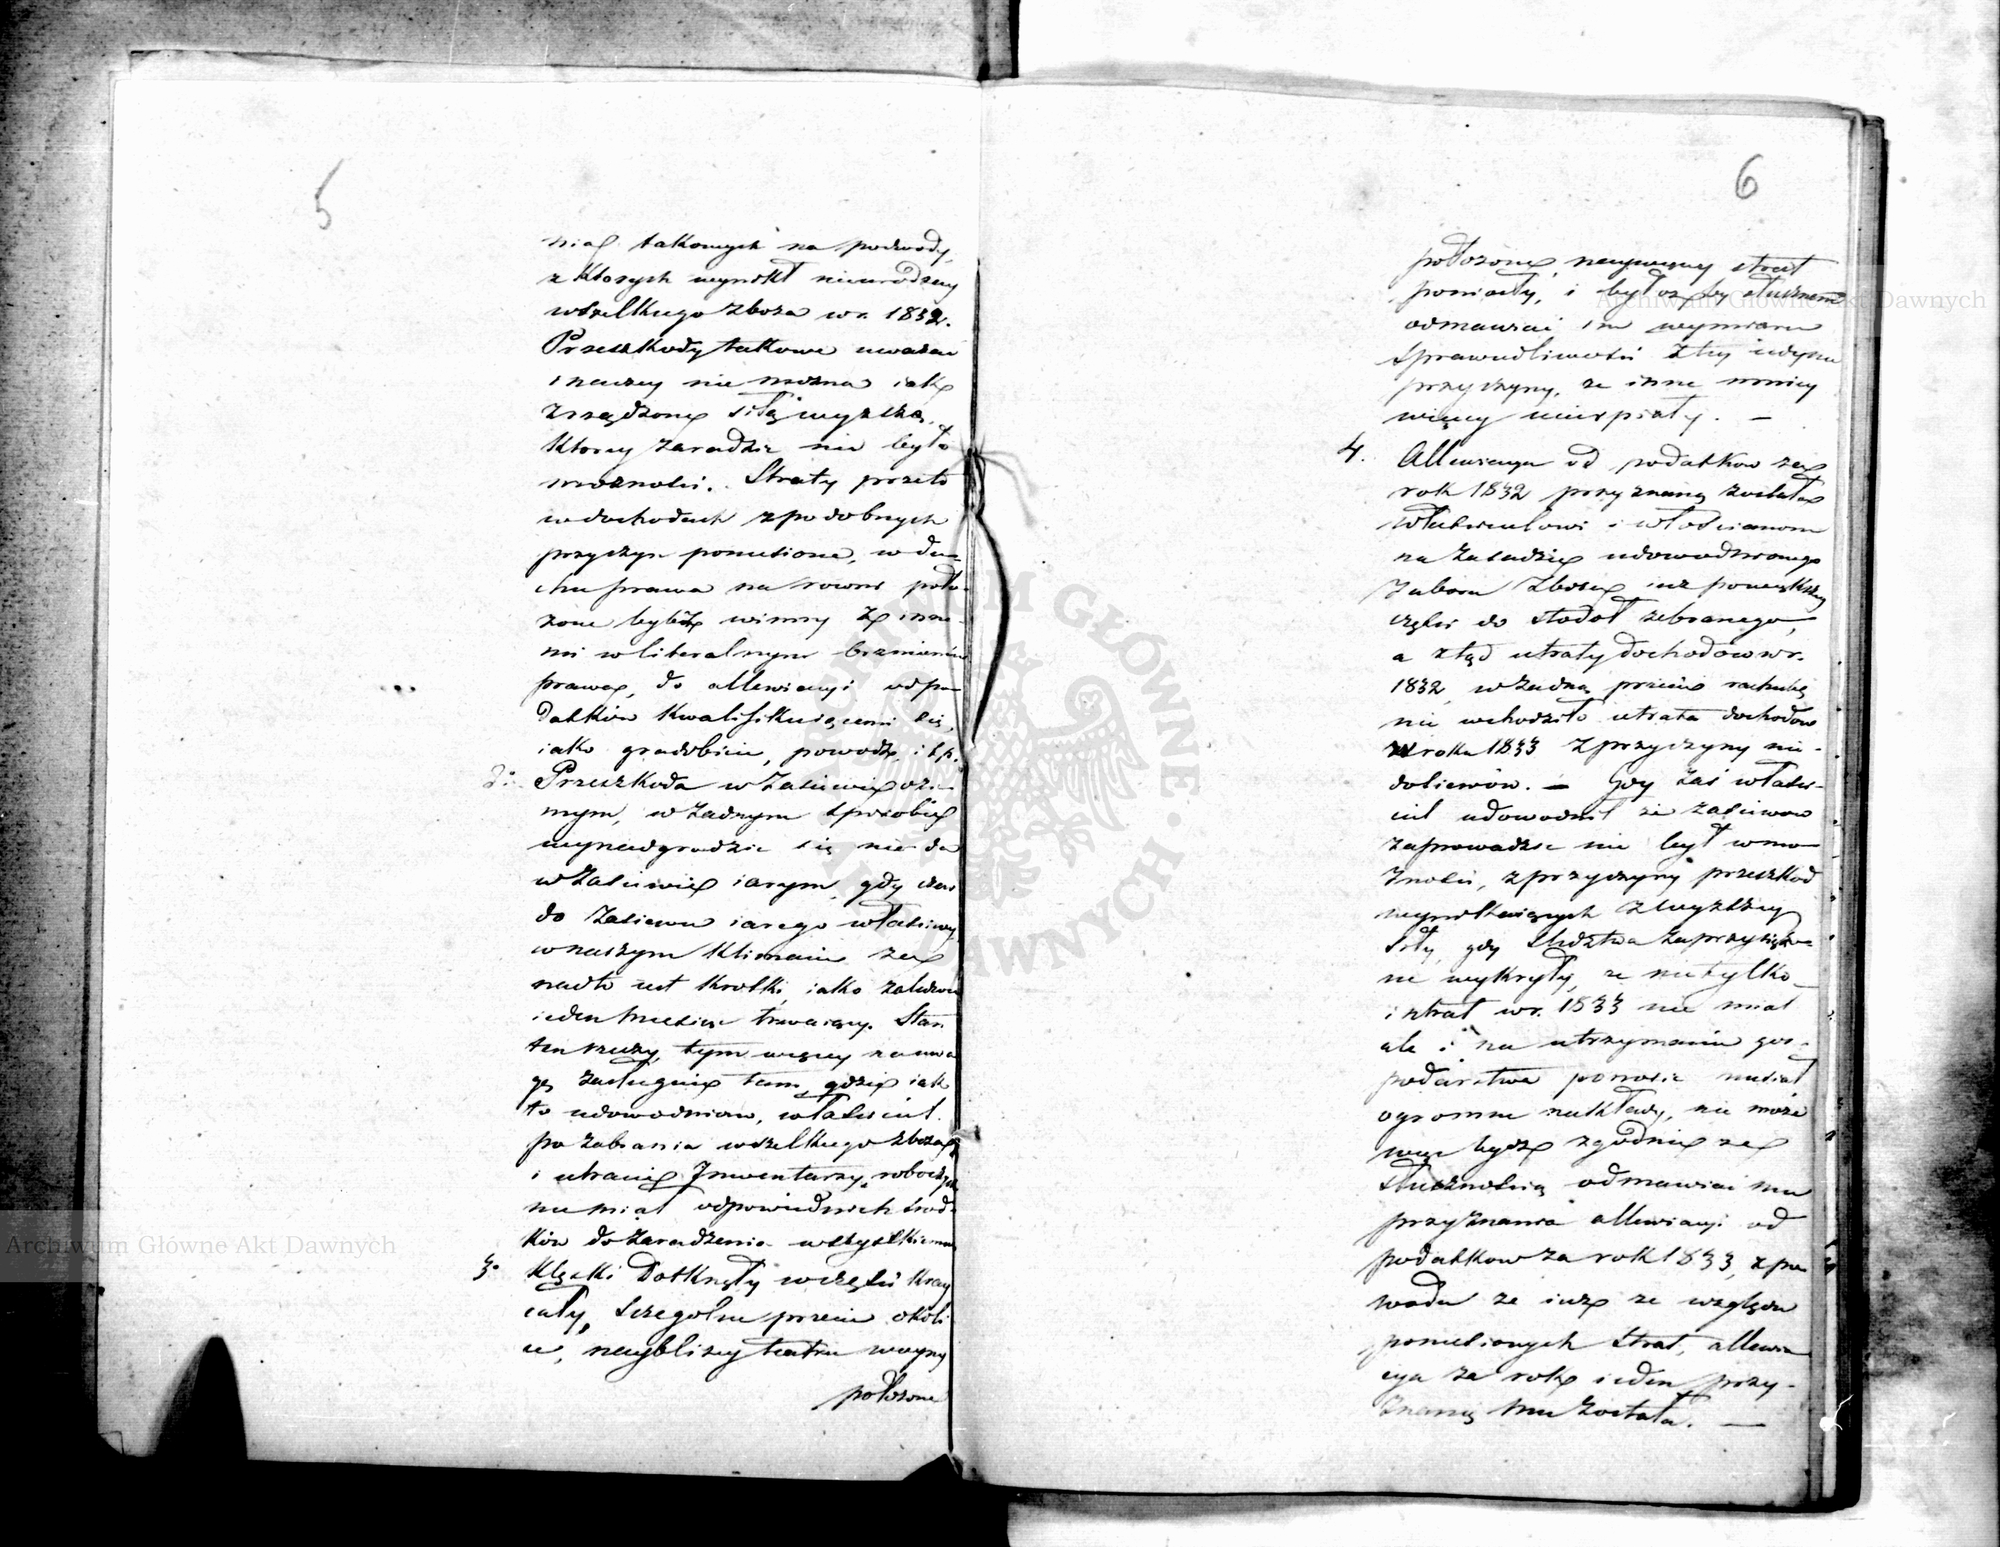 5
nia takowych na podwody,
z ktorych wynikł nieurodzay
wszelkiego zboża w r. 1832.
Przeszkody takowe uważać
inaczey nie można iak
zrządzone siłą wyższą,
ktorey zaradzić nie było
możności. Straty przeto
w dochodach z podobnych
przyczyn poniesione, w du-
chu prawa na rowni poło-
żone bydź winny z inne-
mi w liberalnym brzmieniu
prawa, do allewiacyi od po-
datków kwalifikuiącemi się,
iako gradobicie, powodź, i t.p.
2° Przeszkoda w zasiewie ozi-
mym, w żadnym sposobie
wynadgrodzić się nie da
w zasiewie iarym, gdy czas
do zasiewu iarego właściwy
w naszym klimacie za
nadto iest krotki, iako zaledwie
ieden miesiąc trwaiący. Stan
ten rzeczy, tym więcey na uwa-
gę zasługuie tam, gdzie iak
to udowodniono, właściciel
po zabraniu wszelkiego zboża
i utracie Inwentarzy roboczych
nie miał odpowiednich środ-
ków do zaradzenia wszystkiemu
3° Klęski dotknęły w części kray
cały, szczegolnie przecie okoli-
ce, naybliżey teatru woyny
położone
6
położone, naywięcey strat
poniosły, i byłoż by słusznem
odmawiać im wymiaru
sprawiedliwości z tey iedynie
przyczyny, że inne mniey
więcey ucierpiały. —
4. Allewiacya od podatkow za
rok 1832 przyznaną została
właścicielowi i włościanom
na zasadzie udowodnionego
zaboru zboża iuż po większey
części do stodoł zebranego,
a ztąd utraty dochodow w r.
1832, w żadną przecie rachubę
nie wchodziło utrata dochodow
w roku 1833 z przyczyny nie-
dosiewów. — Gdy zaś właści-
ciel udowodnił że zasiewow
zaprowadzić nie był w mo-
żności, z przyczyny przeszkod
wynikaiących z wyższey
siły, gdy śledztwa zaprzysiężo-
ne wykryły, że nie tylko
intrat w r. 1833 nie miał
ale i na utrzymanie gos-
podarstwa ponosić musiał
ogromne nakłady, nie może
więc bydź zgodnie ze
słusznością odmawiać mu
przyznania allewiacyi od
podatkow za rok 1833, z po-
wodu że iuż ze względu
poniesionych strat, allewia-
cya za rok ieden przy-
znaną mu została. —
Archiwum Główne Akt Dawnych
Archiwum Główne Akt Dawnych
ARCHIWUM GŁÓWNE AKT DAWNYCH